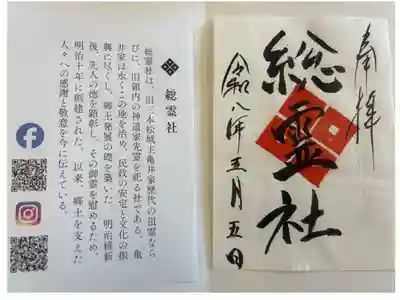 奉拝
総霊社
令和八年三月五日
総霊社
総霊社は、旧三本松城主亀井家歴代の祖霊なら
びに、旧領内の神道家先霊を祀る社である。亀
井家は永くこの地を治め、民政の安定と文化の振
興に尽くし、郷土発展の礎を築いた。明治維新
後、先人の徳を顕彰し、その御霊を慰めるため、
明治十年に創建された。以来、郷土を支えた
人々への感謝と敬意を今に伝えている。